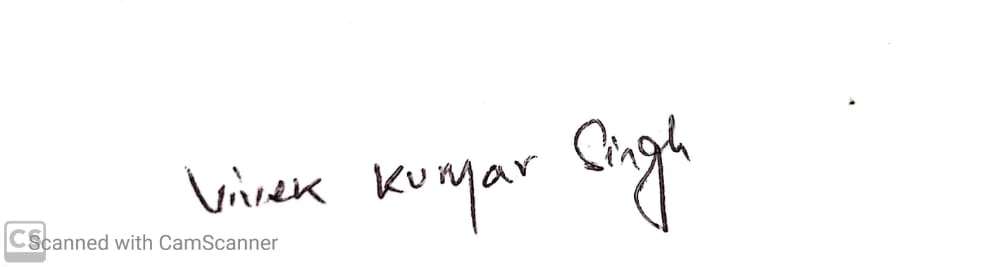 Vivek Kumar Singh
CS Scanned with CamScanner